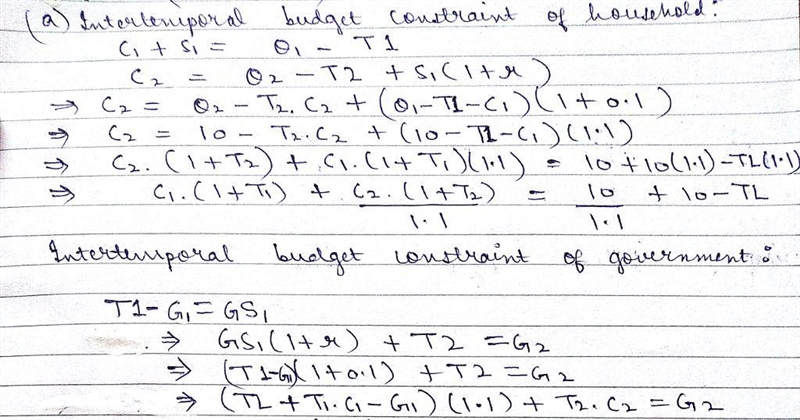 (a) Intertemporal budget constraint of household:
C₁ + S₁ = Q₁ - T1
C₂ = Q₂ - T2 + S₁(1+r)
⇒ C₂ = Q₂ - T₂.C₂ + (Q₁-T1-C₁)(1+0.1)
⇒ C₂ = 10 - T₂.C₂ + (10-T1-C₁)(1.1)
⇒ C₂.(1+T₂) + C₁.(1+T₁)(1.1) = 10 + 10(1.1) - TL(1.1)
⇒ C₁.(1+T₁) + C₂.(1+T₂)/1.1 = 10/1.1 + 10 - TL
Intertemporal budget constraint of government:
T1-G₁ = GS₁
⇒ GS₁(1+r) + T2 = G₂
⇒ (T1-G₁)(1+0.1) + T2 = G₂
⇒ (TL + T₁.C₁ - G₁)(1.1) + T₂.C₂ = G₂